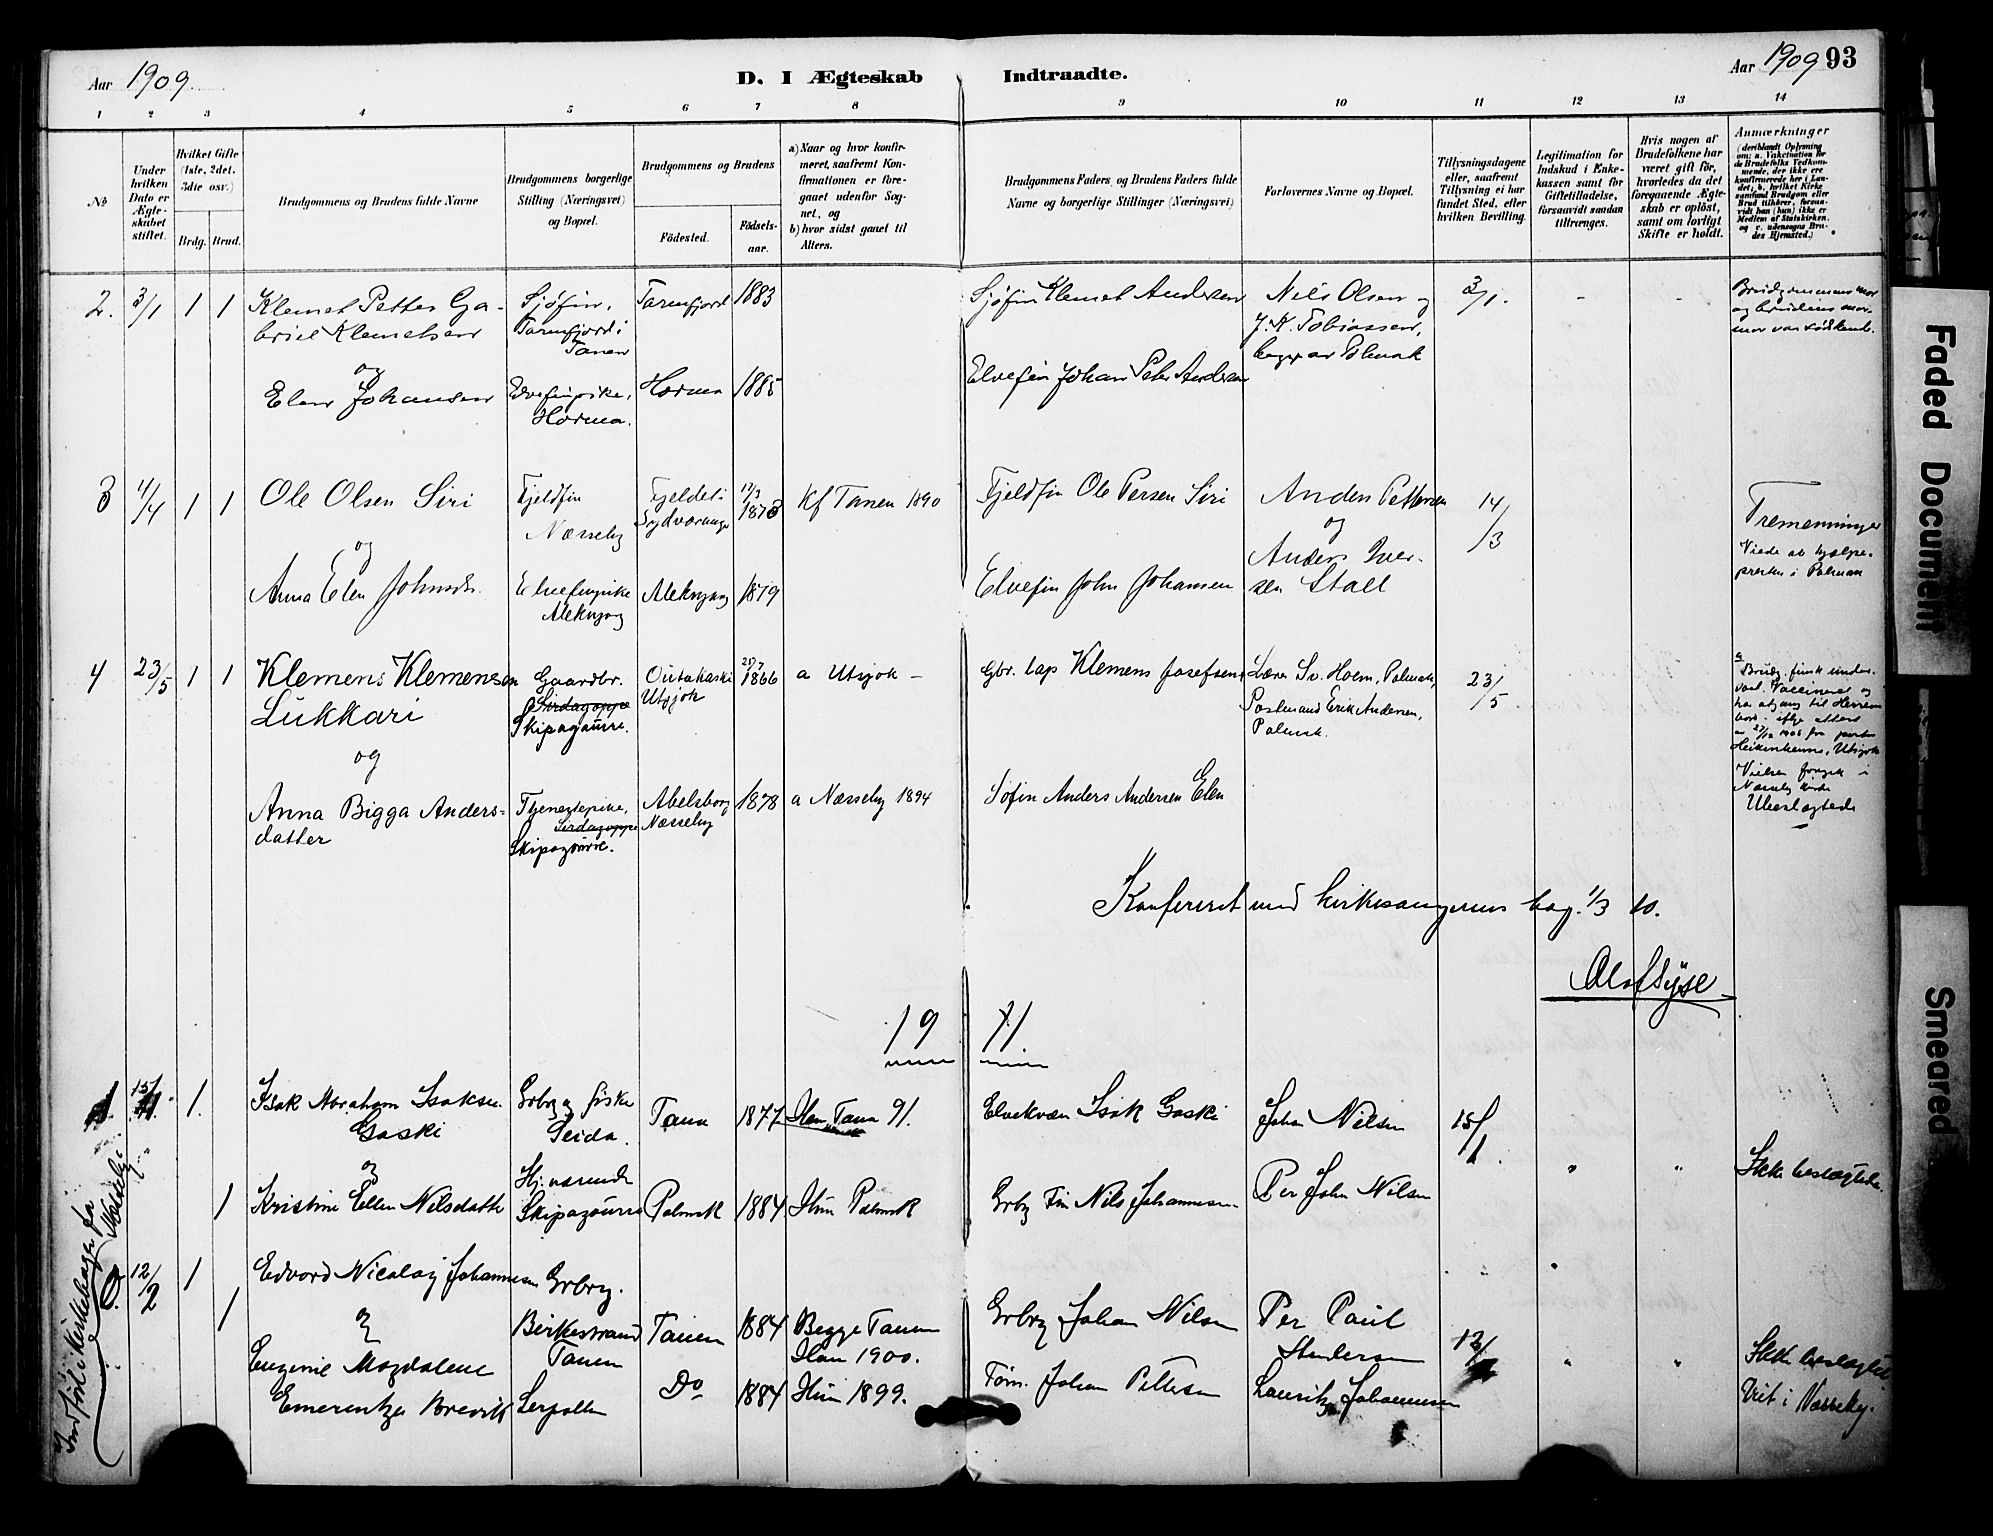 Aar 1909
D. I Ægteskab Indtraadte.
Aar 1909 93
1 2 3 4 5 6 7 8 9 10 11 12 13 14
№
Under hvilken Dato er Ægteskabet stiftet.
Hvilket Gifte (1ste, 2det, 3die osv.)
Brdg. Brud.
Brudgommens og Brudens fulde Navne
Brudgommens borgerlige Stilling (Næringsvei) og Bopæl.
Brudgommens og Brudens
Fødested.
Fødselsaar.
a) Naar og hvor konfirmeret, saafremt Konfirmationen er foregaaet udenfor Sognet, og
b) hvor sidst gaaet til Alters.
Brudgommens Faders og Brudens Faders fulde Navne og borgerlige Stillinger (Næringsvei)
Forlovernes Navne og Bopæl.
Tillysningsdagene eller, saafremt Tillysning ei har fundet Sted, efter hvilken Bevilling.
Legitimation for Indskud i Enkekassen samt for Giftetilladelse, forsaavidt saadan tiltrænges.
Hvis nogen af Brudefolkene har været gift før, hvorledes da det foregaaende Ægteskab er opløst, samt om lovligt Skifte er holdt.
Anmærkninger
(deriblandt Oplysning om: a. Vakcination for de Brudefolks Vedkommende, der ikke ere konfirmerede her i Landet; b. hvilket Kirkesamfund Brudgom eller Brud tilhører, forsaavidt han (hun) ikke er Medlem af Statskirken, og c. udensogns Brudes Hjemsted.)
2. 3/1 1 1 Klemet Petter Ga-
briel Klemetsen
og
Elen Johansen
Sjøfin,
Tarmfjord i
Tanen
Elvefinpike,
Horma.
Tarmfjord 1883
Horma 1885
Sjøfin Klemet Andersen
Elvefin Johan Peter Andersen
Nils Olsen og
J. K. Tobiassen,
begge av Polmak
3/1. - -
Brudgommens mor
og brudens mor-
mor var sødskend.
3 4/4 1 1 Ole Olsen Siri
og
Anna Elen Johnsdt.
Fjeldfin
Næsseby
Elvefinpike
Aleknjarg
Fjeldet i
Sydvaranger
12/3 1873
Aleknjarg 1879
Kf Tanen 1890
Fjeldfin Ole Persen Siri
Elvefin John Johansen
Anders Pettersen
og
Anders Iver-
sen Stall
14/3
Tremenninger
Viede av hjelpe-
presten i Polmak
4 23/5 1 1 Klemens Klemensen
Lukkari
og
Anna Bigga Anders-
datter
Gaardbr.
Sirdagoppe
Skipagurre.
Tjenestepike,
Sirdagoppe
Skipagurre.
Outakoski
Utsjok
1866
Abelsborg
Næsseby
1878
a Utsjok -
a Næsseby 1894
Gbr. lap Klemens Josefsen
Søfin Anders Andersen Elen
Lærer Sv. Holm, Polmak,
Postmand Erik Andersen,
Polmak.
23/5
Brudg. finsk under-
saat. Vaccineret og
har adgang til Herrens
bord - ifølge attest
1906 fra
Utsjok
Vielsen foregik i
Næsseby kirke
Ubeslægtede
Konfereret med kirkesangerens bog. 1/3 10.
Olaf Syse
19 11
15/1 1. Isak Abraham Isaksen
Gaski
og
1 Kristine Ellen Nilsdatter
Grbr og fisker
Seida.
Skipagurre
Tana 1877 Han Tana 91.
Polmak 1884 Hun Polmak
Elvekvæn Isak Gaski
Grbr Fin Nils Johannesen
Johan Nilsen
Per John Nilsen
15/1. " "
Ikke beslægtede.
Indført i kirkeboge fra
Nesseby
12/2 1 Edvard Nicolay Johannesen
1 og
Eugenie Magdalene
Emerentze Brevik
Grbr.
Birkestrand
Tanen
Lerpollen
Tanen 1884
Do 1884
Begge Tanen
Han 1900.
Hun 1899.
Grbr Johan Nilsen
Tøm. Johan Pettersen
Per Paul
Lauritz Johannesen
12/ " "
Ikke beslægtet.
Viet i Næsseby.
Faded Document
Smeared